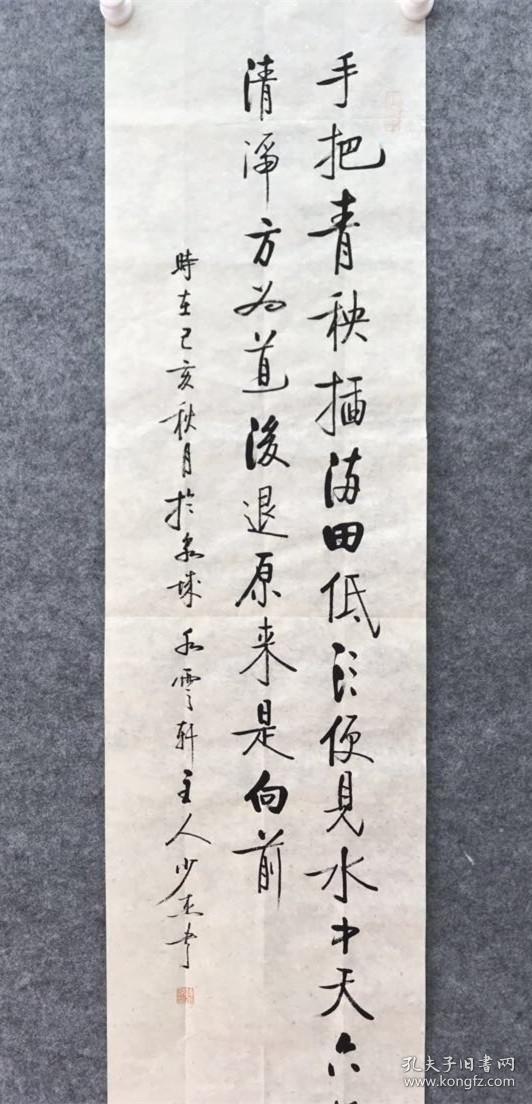 手把青秧插满田低头便见水中天六
清净方为道後退原来是向前
時在己亥秋月於泉城水雲軒主人少杰书
孔夫子旧书网
www.kongfz.com